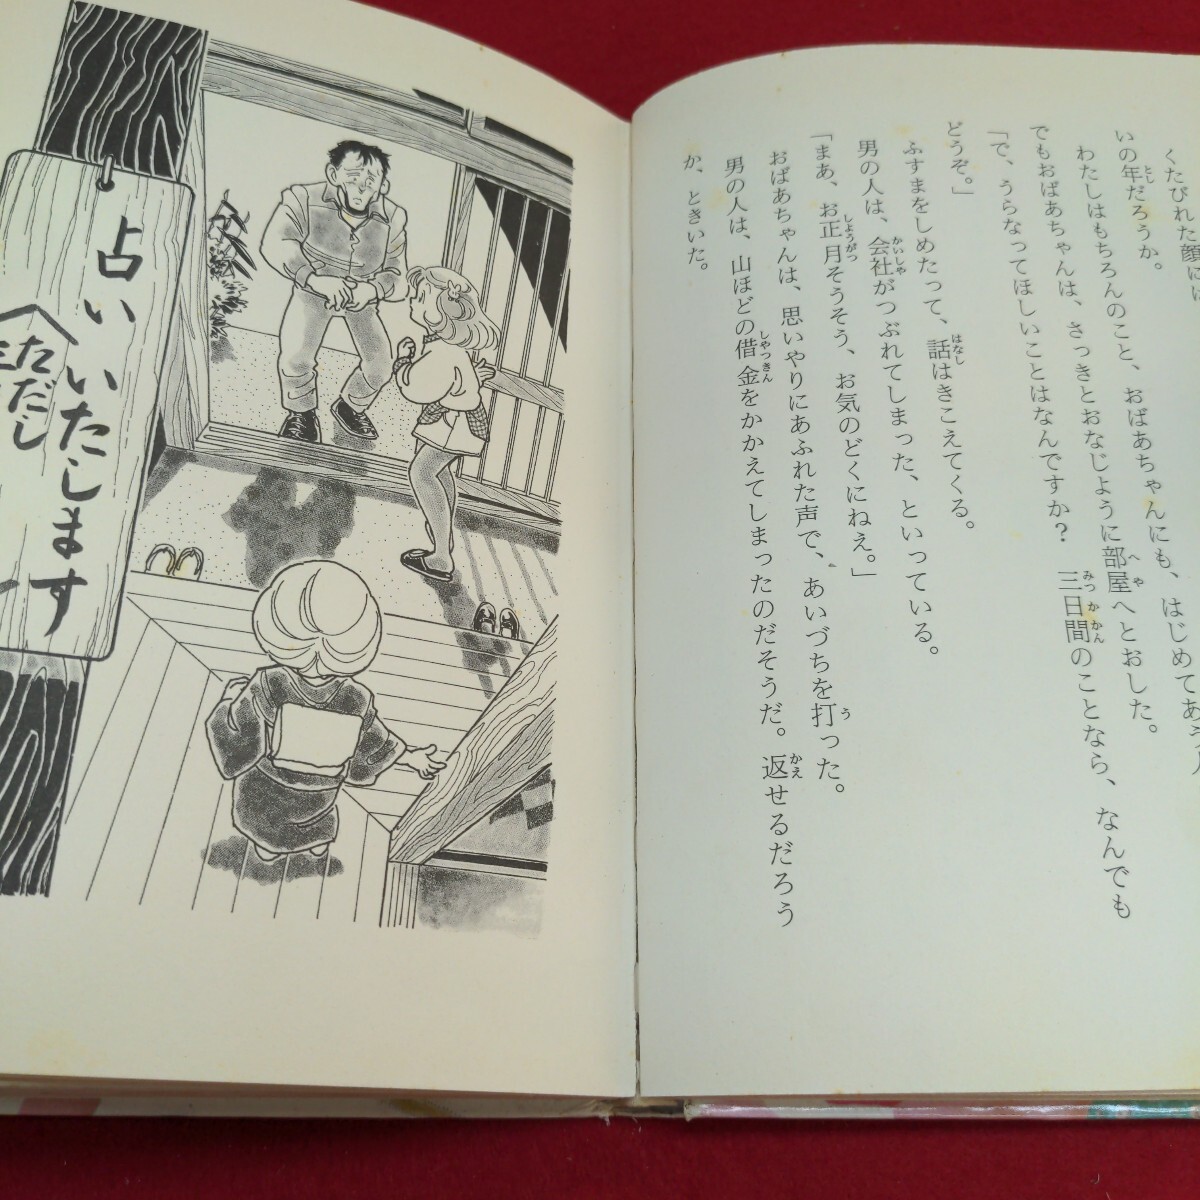 くたびれた顔には
いの年だろうか。
わたしはもちろんのこと、おばあちゃんにも、はじめてあう人
でもおばあちゃんは、さっきとおなじように部屋へとおした。
「で、うらなってほしいことはなんですか？　三日間のことなら、なんでも
どうぞ。」
ふすまをしめたって、話はきこえてくる。
男の人は、会社がつぶれてしまった、といっている。
「まあ、お正月そうそう、お気のどくにねえ。」
おばあちゃんは、思いやりにあふれた声で、あいづちを打った。
男の人は、山ほどの借金をかかえてしまったのだそうだ。返せるだろう
か、ときいた。
占い
いたします
ただし